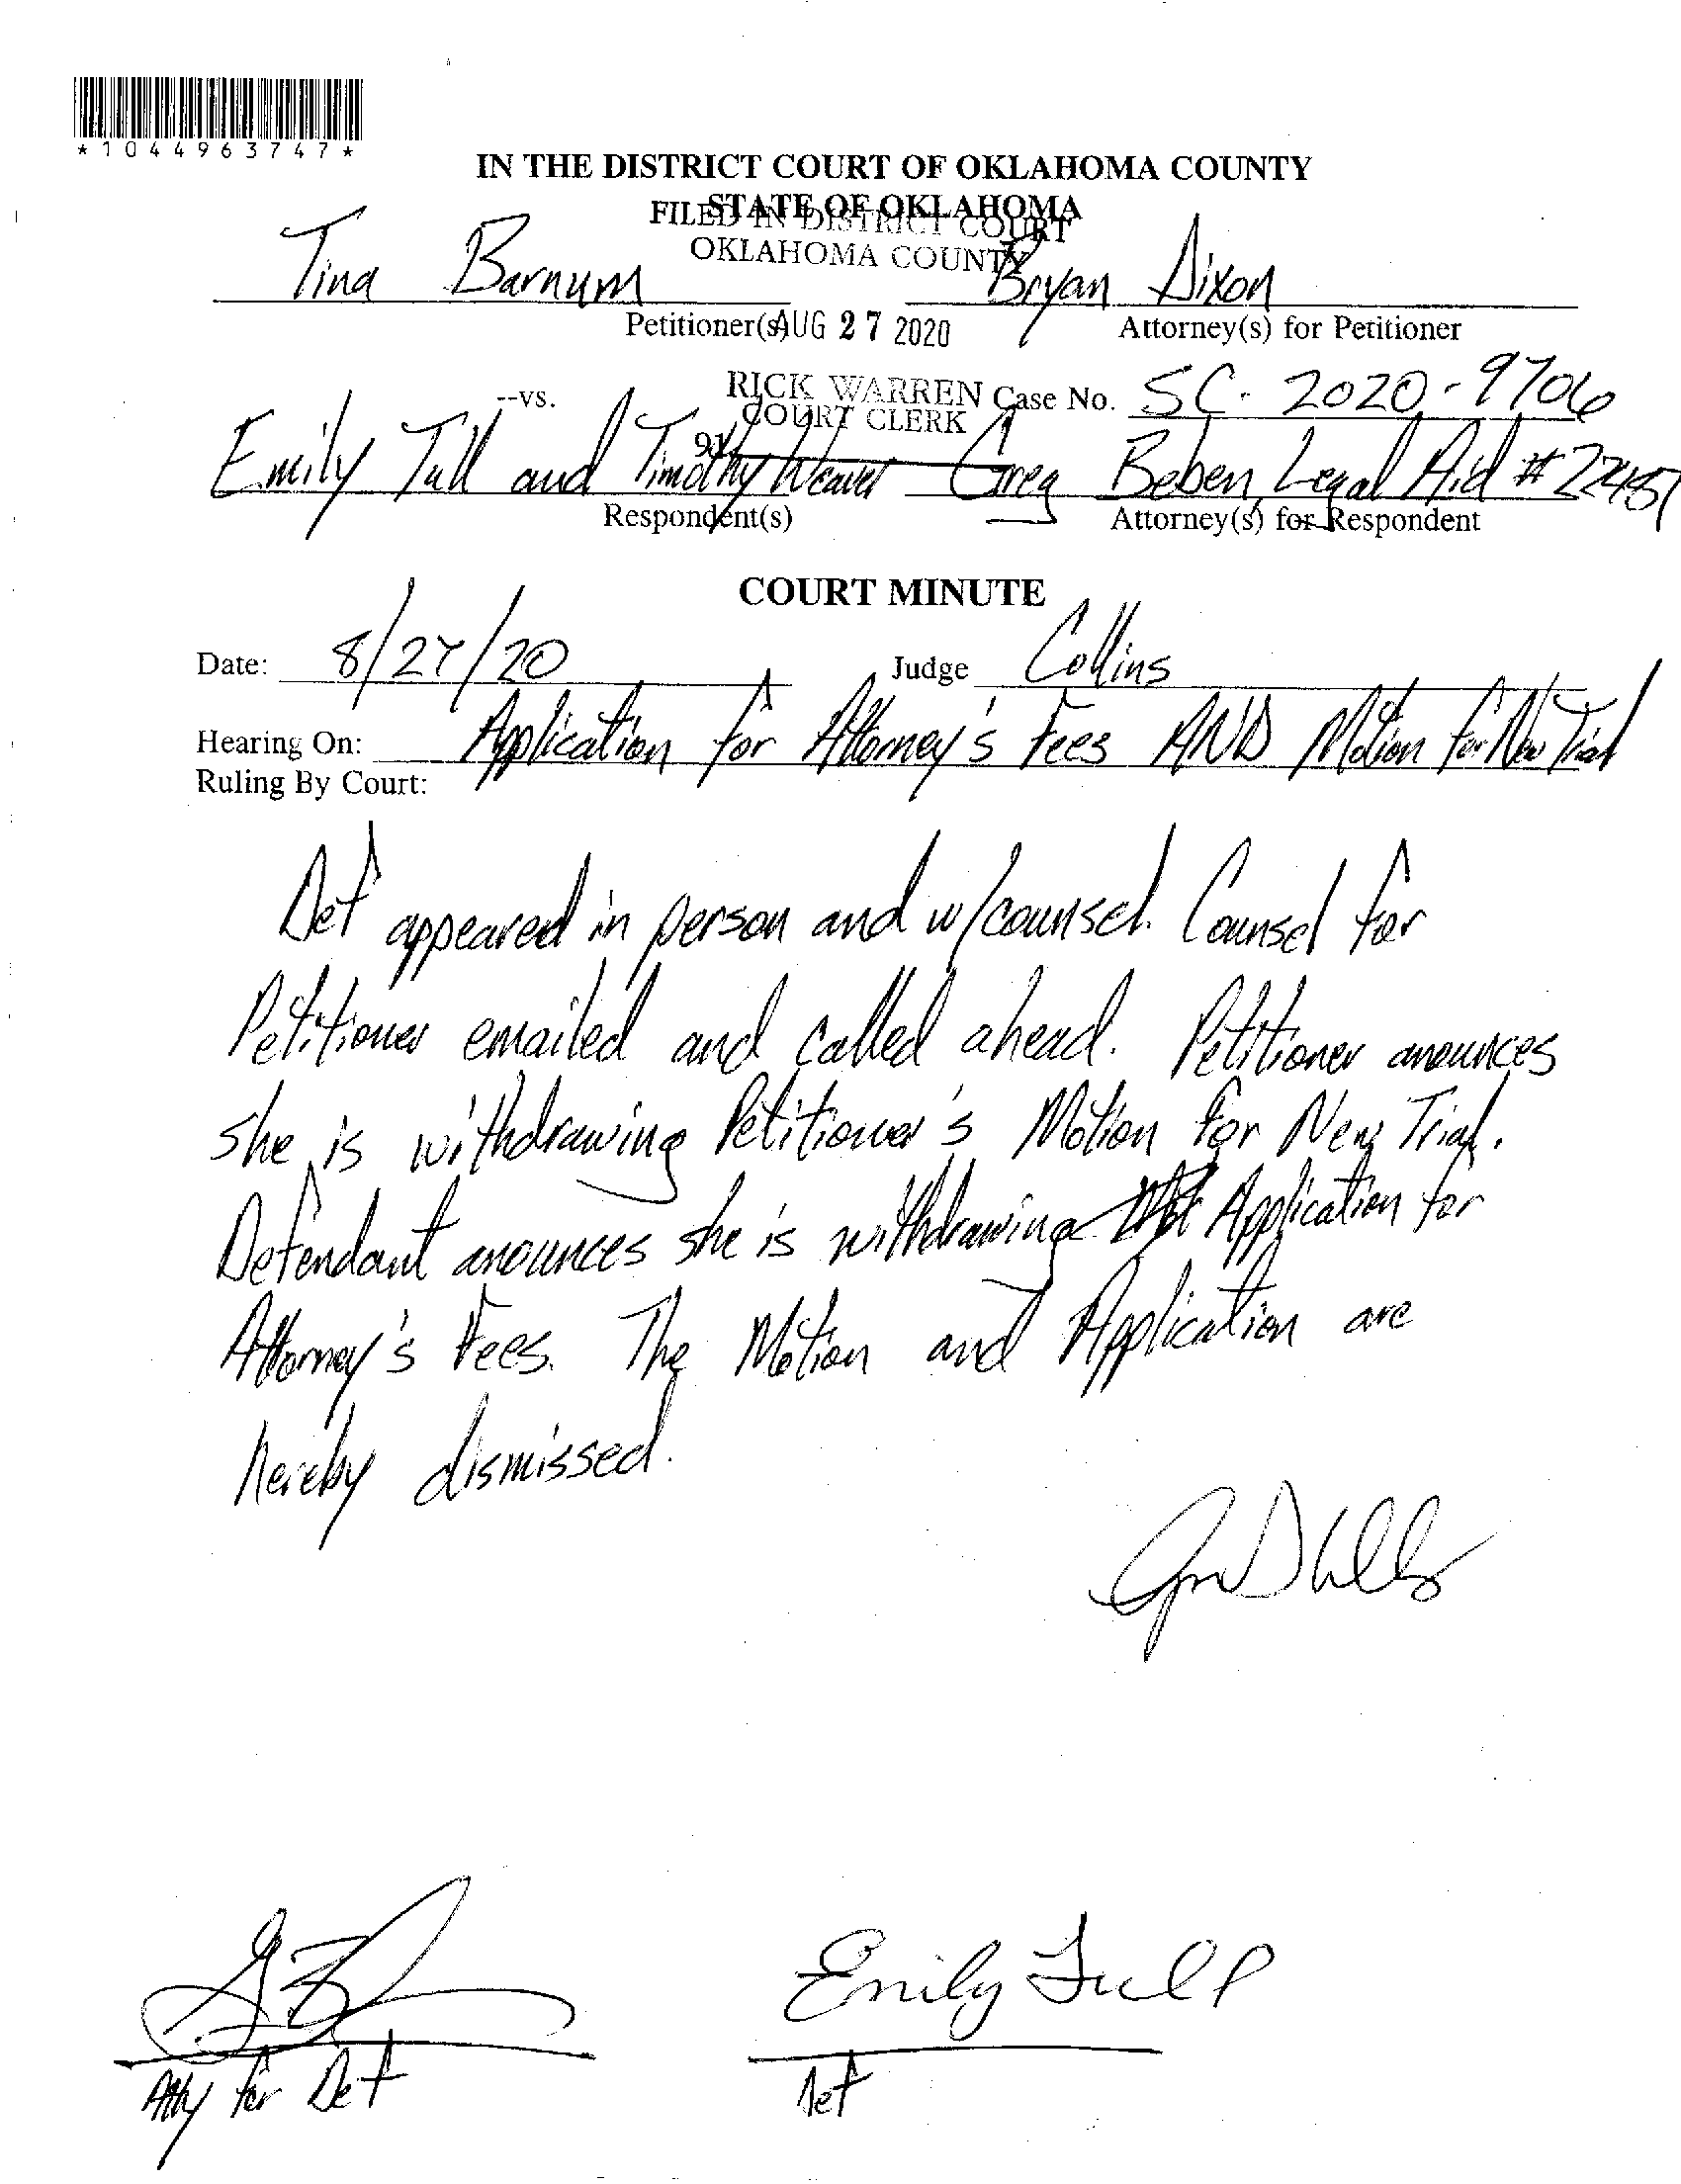 *1044963747*
IN THE DISTRICT COURT OF OKLAHOMA COUNTY
STATE OF OKLAHOMA
FILED IN DISTRICT COURT
OKLAHOMA COUNTY
Tina Barnum Bryan Dixon
Petitioner(s) Attorney(s) for Petitioner
AUG 27 2020
RICK WARREN
COURT CLERK
--vs. Case No. SC-2020-9706
Emily Tull and Timothy Weaver Greg Beben, Legal Aid #22457
Respondent(s) Attorney(s) for Respondent
COURT MINUTE
Date: 8/27/20 Judge Collins
Hearing On: Application for Attorney's Fees AND Motion for New Trial
Ruling By Court:
Def appeared in person and w/counsel. Counsel for
Petitioner emailed and called ahead. Petitioner anounces
she is withdrawing Petitioner's Motion for New Trial.
Defendant anounces she is withdrawing Application for
Attorney's Fees. The Motion and Application are
hereby dismissed.
Emily Tull
Atty for Def Def